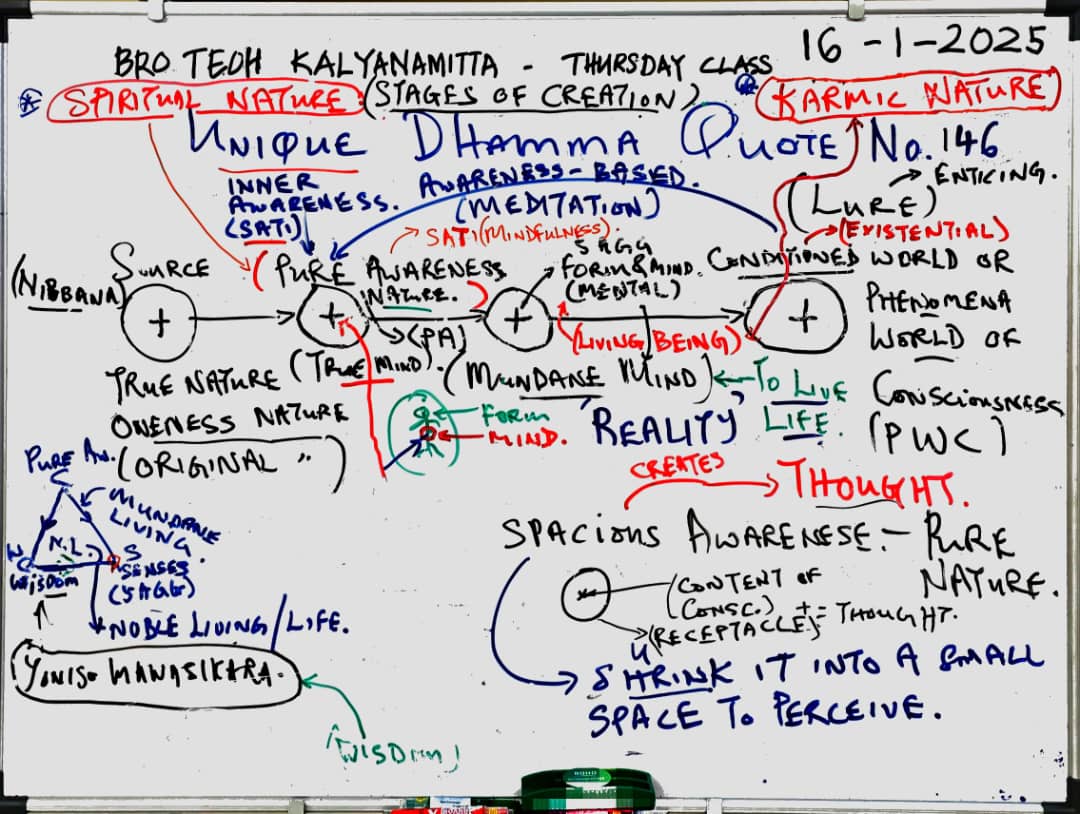 16-1-2025
BRO TEOH KALYANAMITTA - THURSDAY CLASS
SPIRITUAL NATURE: (STAGES OF CREATION)
KARMIC NATURE
UNIQUE DHAMMA QUOTE No.146
INNER
AWARENESS.
(SATI)
AWARENESS-BASED.
(MEDITATION)
(LURE)
ENTICING.
(EXISTENTIAL)
SATI (MINDFULNESS).
5 AGG
FORM & MIND.
(MENTAL)
(NIBBANA)
SOURCE
(PURE AWARENESS
NATURE.)
CONDITIONED WORLD OR
PHENOMENA
WORLD OF
CONSCIOUSNESS
(PWC)
+
+
+
+
(PA)
(LIVING BEING)
TRUE NATURE
(TRUE MIND).
(MUNDANE MIND)
TO LIVE
LIFE.
ONENESS NATURE
(ORIGINAL ")
FORM
MIND.
'REALITY'
CREATES
THOUGHT.
PURE AW.
MUNDANE
LIVING.
W
N.L.
S
WISDOM
SENSES
(5 AGG)
NOBLE LIVING/LIFE.
YONISO MANASIKARA.
(WISDOM)
SPACIOUS AWARENESE:- PURE
NATURE.
(CONTENT OF
(CONSC.)
(RECEPTACLE) += THOUGHT.
SHRINK IT INTO A SMALL
SPACE TO PERCEIVE.